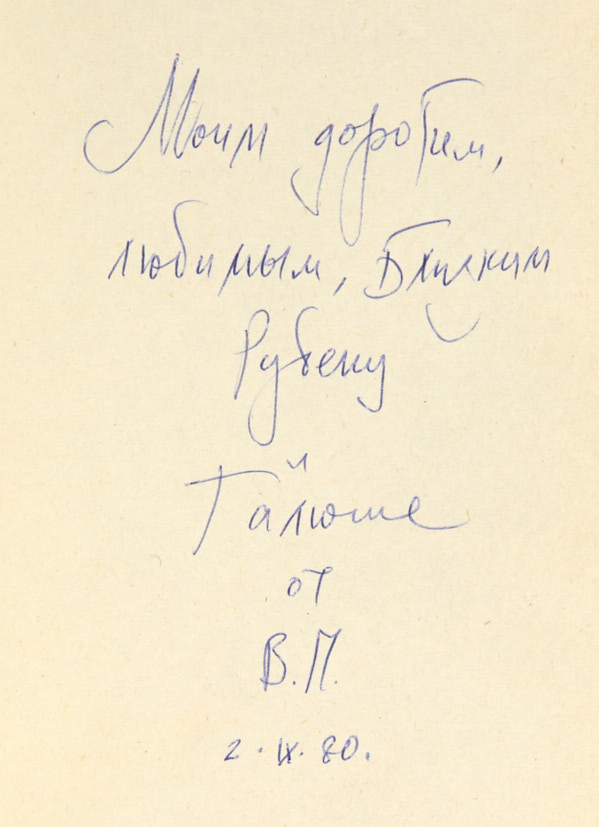 Моим дорогим,
любимым, близким
Рубену
и
Галюше
от
В.М.
2.IX.80.